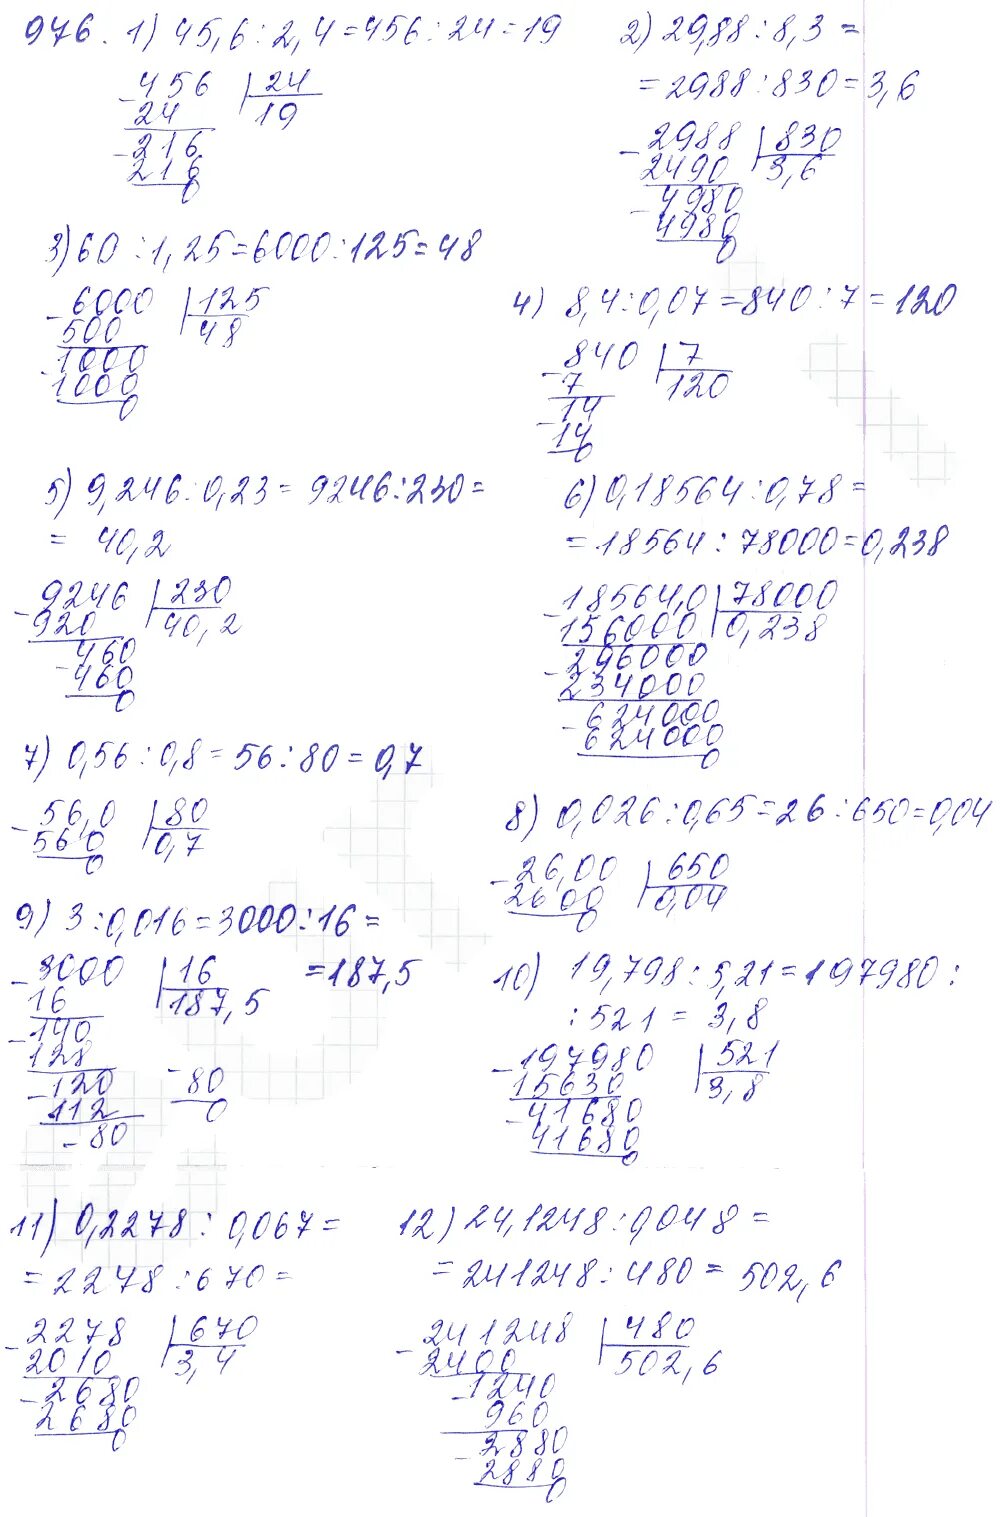 976. 1) 45,6 : 2,4 = 456 : 24 = 19
456 24
24 19
216
216
0
2) 29,88 : 8,3 =
= 2988 : 830 = 3,6
2988 830
2490 3,6
4980
4980
0
3) 60 : 1,25 = 6000 : 125 = 48
6000 125
500 48
1000
1000
0
4) 8,4 : 0,07 = 840 : 7 = 120
840 7
7 120
14
14
0
5) 9,246 : 0,23 = 9246 : 230 =
= 40,2
9246 230
920 40,2
460
460
0
6) 0,18564 : 0,78 =
= 18564 : 78000 = 0,238
18564,0 78000
156000 0,238
296000
234000
624000
624000
0
7) 0,56 : 0,8 = 56 : 80 = 0,7
56,0 80
560 0,7
0
8) 0,026 : 0,65 = 26 : 650 = 0,04
26,00 650
2600 0,04
0
9) 3 : 0,016 = 3000 : 16 =
= 187,5
3000 16
16 187,5
140
128
120
112
80
80
0
10) 19,798 : 5,21 = 197980 :
: 521 = 3,8
197980 521
15630 3,8
41680
41680
0
11) 0,2278 : 0,067 =
= 2278 : 670 =
2278 670
2010 3,4
2680
2680
0
12) 24,1248 : 0,048 =
= 241248 : 480 = 502,6
241248 480
2400 502,6
1240
960
2880
2880
0